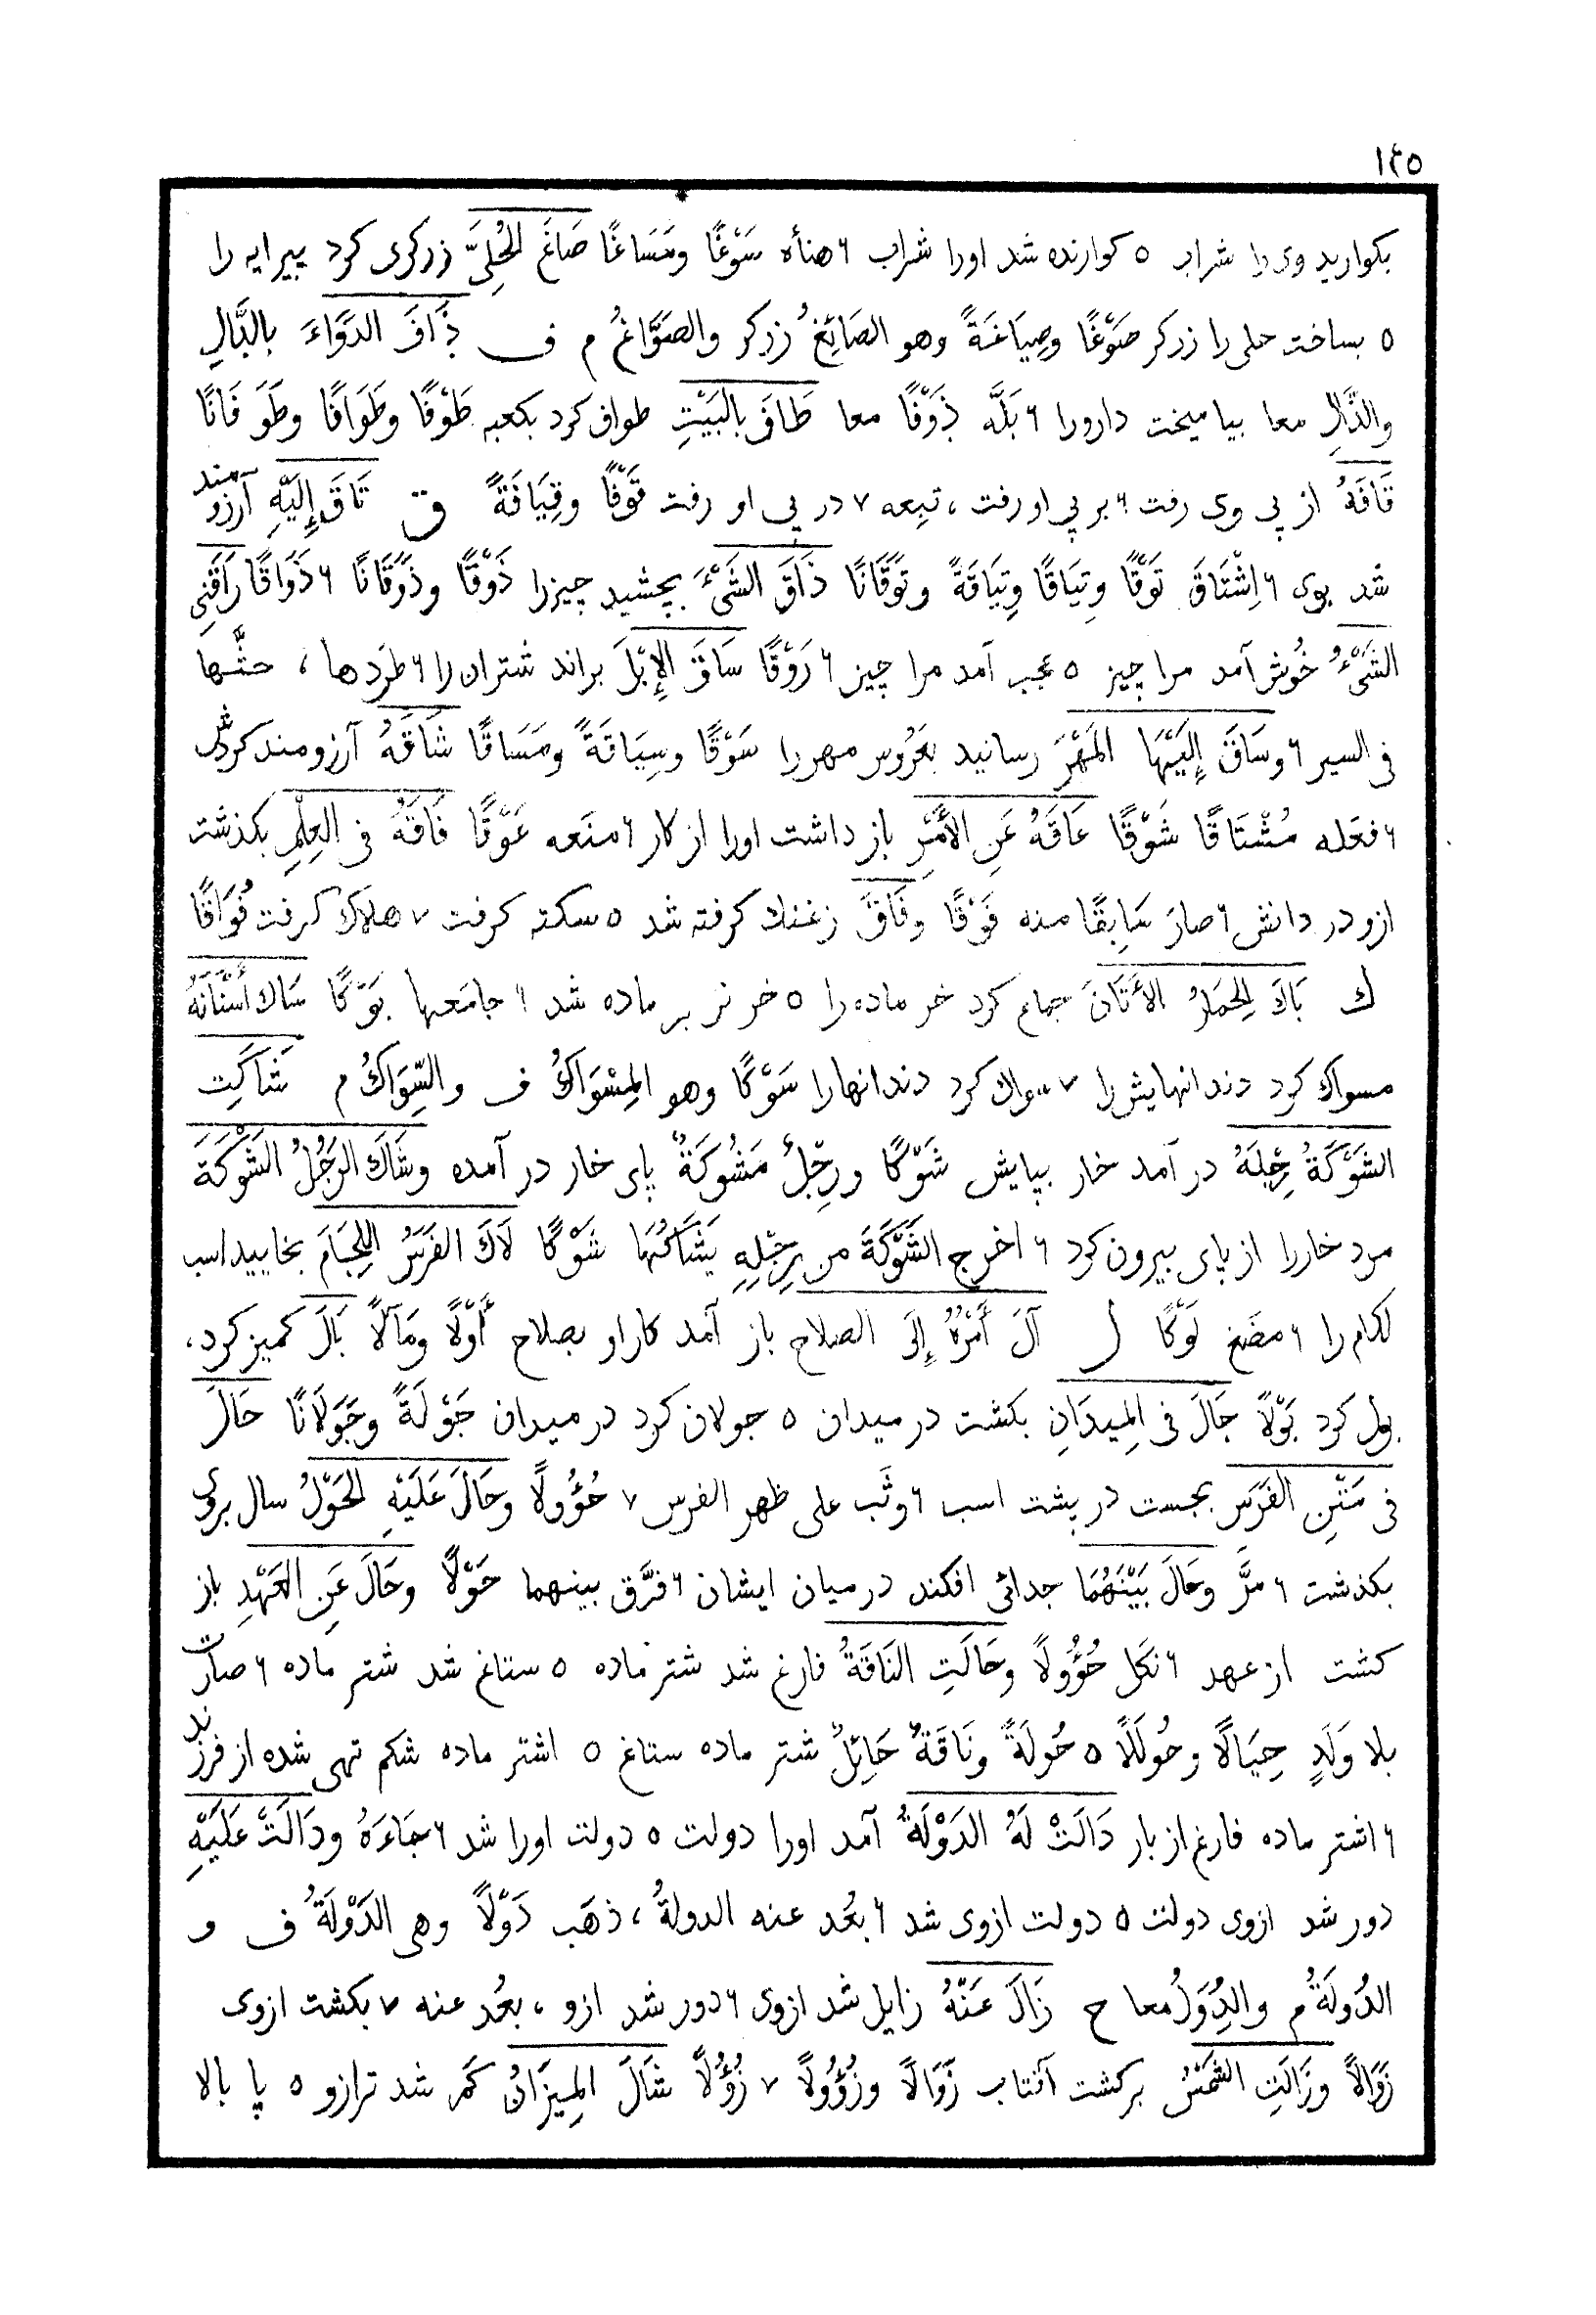 ١٤٥
بكواريد وى را شراب ٥ كوارنده شد اورا شراب ٦ هنأه سَوْغًا ومَسَاغًا صَاغَ الحُلِىَّ زركرى كرد پيرايه را
٥ بساخت حلى را زركر صَوْغًا وصِيَاغَةً وهو الصَائِغُ زركر والصَوَّاغُ م ف ذَافَ الدَوَاءَ بالدَّالِ
والذَّالِ معا بياميخت دارورا ٦ بَلَّه ذَوْفًا معا طَافَ بالبَيْتِ طواف كرد بكعبه طَوْفًا وطَوَافًا وطَوَفَانًا
قَافَهُ از پى وى رفت ٦ بر پى او رفت ، تبِعه ٧ در پى او رفت قَوْفًا وقِيَافَةً ق تَاقَ إِلَيْهِ آرزومند
شد بوى ٦ اِشْتَاقَ تَوْقًا وتِيَاقًا وتِيَاقَةً وتَوَقَانًا ذَاقَ الشَىْءَ بچشيد چيزرا ذَوْقًا وذَوَقَانًا ٦ ذَوَاقًا رَاقَنِى
الشَىْءُ خُوش آمد مرا چيز ٥ عجب آمد مرا چيز ٦ رَوْقًا سَاقَ الإِبْلَ براند شتران را ٦ طرَدها ، حثَّها
فى السير ٦ وسَاقَ إِلَيْهَا المَهْرَ رسانيد بعَرُوس مهررا سَوْقًا وسِيَاقَةً ومَسَاقًا شَاقَهُ آرزومند كردش
٦ فعَله مُشْتَاقًا شَوْقًا عَاقَهُ عَنِ الأَمْرِ باز داشت اورا از كار ٦ منَعه عَوْقًا فَاقَهُ فى العِلْمِ بكذشت
ازو در دانش ٦ صارَ سَابِقًا منه فَوْقًا وفَاقَ زغنك كرفته شد ٥ سكته كرفت ٧ هلاك كرفت فُوَاقًا
ك بَاكَ الحِمَارُ الأَتَانَ جماع كرد خر ماده را ٥ خر نر بر ماده شد ٦ جامَعها بَوْكًا سَاكَ أَسْنَانَهُ
مسواك كرد دندانهايش را ٧ سواك كرد دندانهارا سَوْكًا وهو المِسْوَاكُ ف والسِّوَاكُ م شَاكَتِ
الشَوْكَةُ رِجْلَهُ در آمد خار بپايش شَوْكًا ورِجْلٌ مَشُوكَةٌ پاى خار در آمده وشَاكَ الرَجُلُ الشَوْكَةَ
مرد خاررا از پاى بيرون كرد ٦ اخرج الشَوْكَةَ من رِجْلِهِ يَشَاكُهَا شَوْكًا لَاكَ الفَرَسُ اللِجَامَ بخاييد اسب
لكام را ٦ مضَغ لَوْكًا ل آلَ أَمْرُهُ إِلَى الصلاح باز آمد كار او بصلاح أَوْلًا ومَآلًا بَالَ كميز كرد،
بول كرد بَوْلًا جَالَ فى المِيدَانِ بكشت در ميدان ٥ جولان كرد در ميدان جَوْلَةً وجَوَلَانًا حَالَ
فى مَتْنِ الفَرَسِ بجست در پشت اسب ٦ وثَب على ظهر الفرس ٧ حُؤُولًا وحَالَ عَلَيْهِ الحَوْلُ سال بروى
بكذشت ٦ مرَّ وحَالَ بَيْنَهُمَا جدائى افكند در ميان ايشان ٦ فرَّق بينهما حَوْلًا وحَالَ عَنِ العَهْدِ باز
كشت از عهد ٦ نكَل حُؤُولًا وحَالَتِ النَاقَةُ فارغ شد شتر ماده ٥ ستاغ شد شتر ماده ٦ صارت
بلا وَلَدٍ حِيَالًا وحُولَلًا ٥ حُولَةً ونَاقَةٌ حَائِلٌ شتر ماده ستاغ ٥ اشتر ماده شكم تهى شده از فرزند
٦ اشتر ماده فارغ از بار دَالَتْ لَهُ الدَوْلَةُ آمد اورا دولت ٥ دولت اورا شد ٦ جَاءَهُ ودَالَتْ عَلَيْهِ
دور شد ازوى دولت ٥ دولت ازوى شد ٦ بعُد عنه الدولةُ ، ذهَب دَوْلًا وهى الدَوْلَةُ ف و
الدُولَةُ م والدُِوَلُ معا ح زَالَ عَنْهُ زايل شد ازوى ٦ دور شد ازو ، بعُد عنه ٧ بكشت ازوى
زَوَالًا وزَالَتِ الشَمْسُ بركشت آفتاب زَوَالًا وزُؤُولًا ٧ زُؤُلًا شَالَ المِيزَانُ كم شد ترازو ٥ پا بالا